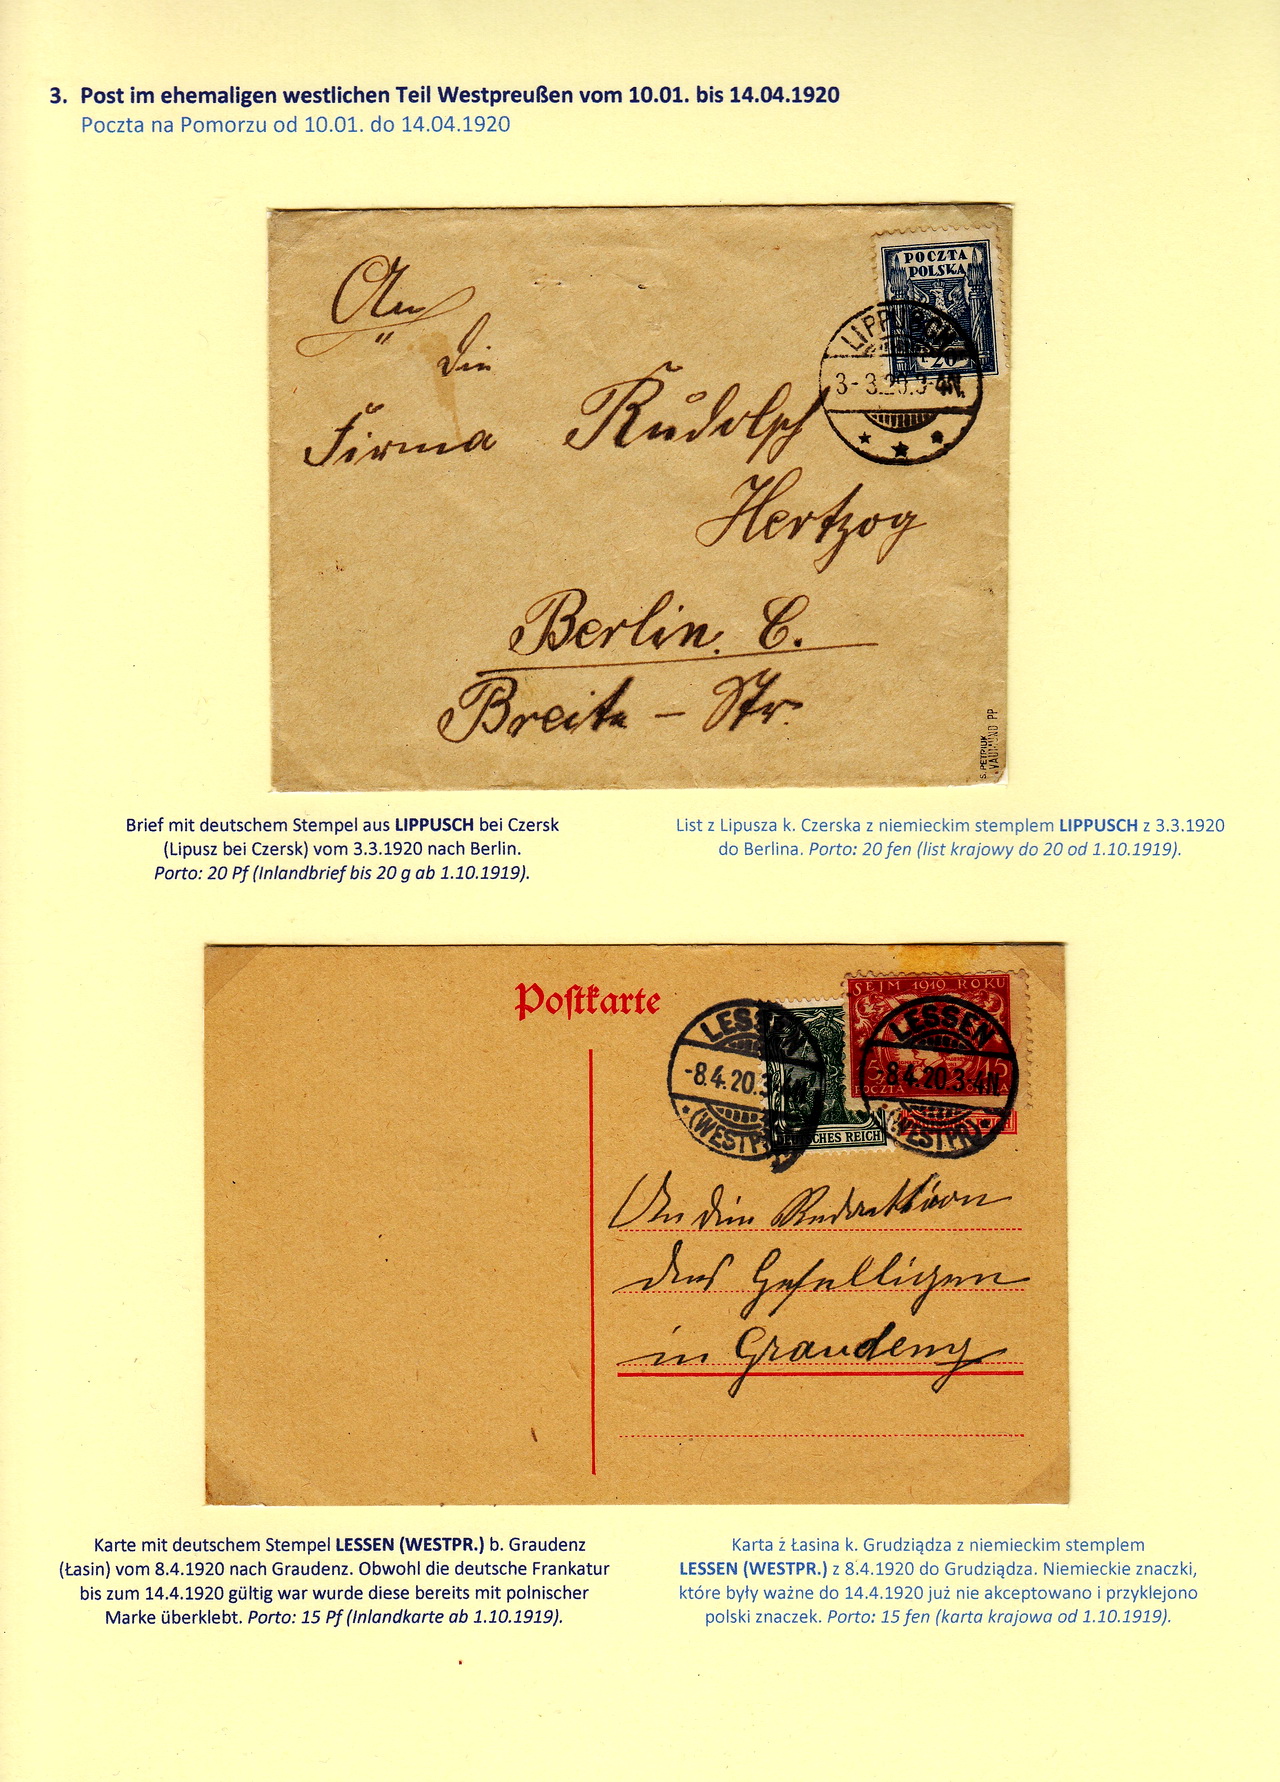 3. Post im ehemaligen westlichen Teil Westpreußen vom 10.01. bis 14.04.1920
Poczta na Pomorzu od 10.01. do 14.04.1920
POCZTA
POLSKA
20
LIPPUSCH
3-3.20.3-4N.
An
die
Firma Rudolph
Hertzog
Berlin. C.
Breite - Str.
S. PETRIUK
PP
Brief mit deutschem Stempel aus LIPPUSCH bei Czersk
(Lipusz bei Czersk) vom 3.3.1920 nach Berlin.
Porto: 20 Pf (Inlandbrief bis 20 g ab 1.10.1919).
List z Lipusza k. Czerska z niemieckim stemplem LIPPUSCH z 3.3.1920
do Berlina. Porto: 20 fen (list krajowy do 20 od 1.10.1919).
Postkarte
SEJM 1919 ROKU
15 15
POCZTA
DEUTSCHES REICH
LESSEN
-8.4.20.3-4N.
(WESTPR.)
LESSEN
-8.4.20.3-4N.
(WESTPR.)
An die Redaktion
des Geselligen
in Graudenz
Karte mit deutschem Stempel LESSEN (WESTPR.) b. Graudenz
(Łasin) vom 8.4.1920 nach Graudenz. Obwohl die deutsche Frankatur
bis zum 14.4.1920 gültig war wurde diese bereits mit polnischer
Marke überklebt. Porto: 15 Pf (Inlandkarte ab 1.10.1919).
Karta ż Łasina k. Grudziądza z niemieckim stemplem
LESSEN (WESTPR.) z 8.4.1920 do Grudziądza. Niemieckie znaczki,
które były ważne do 14.4.1920 już nie akceptowano i przyklejono
polski znaczek. Porto: 15 fen (karta krajowa od 1.10.1919).